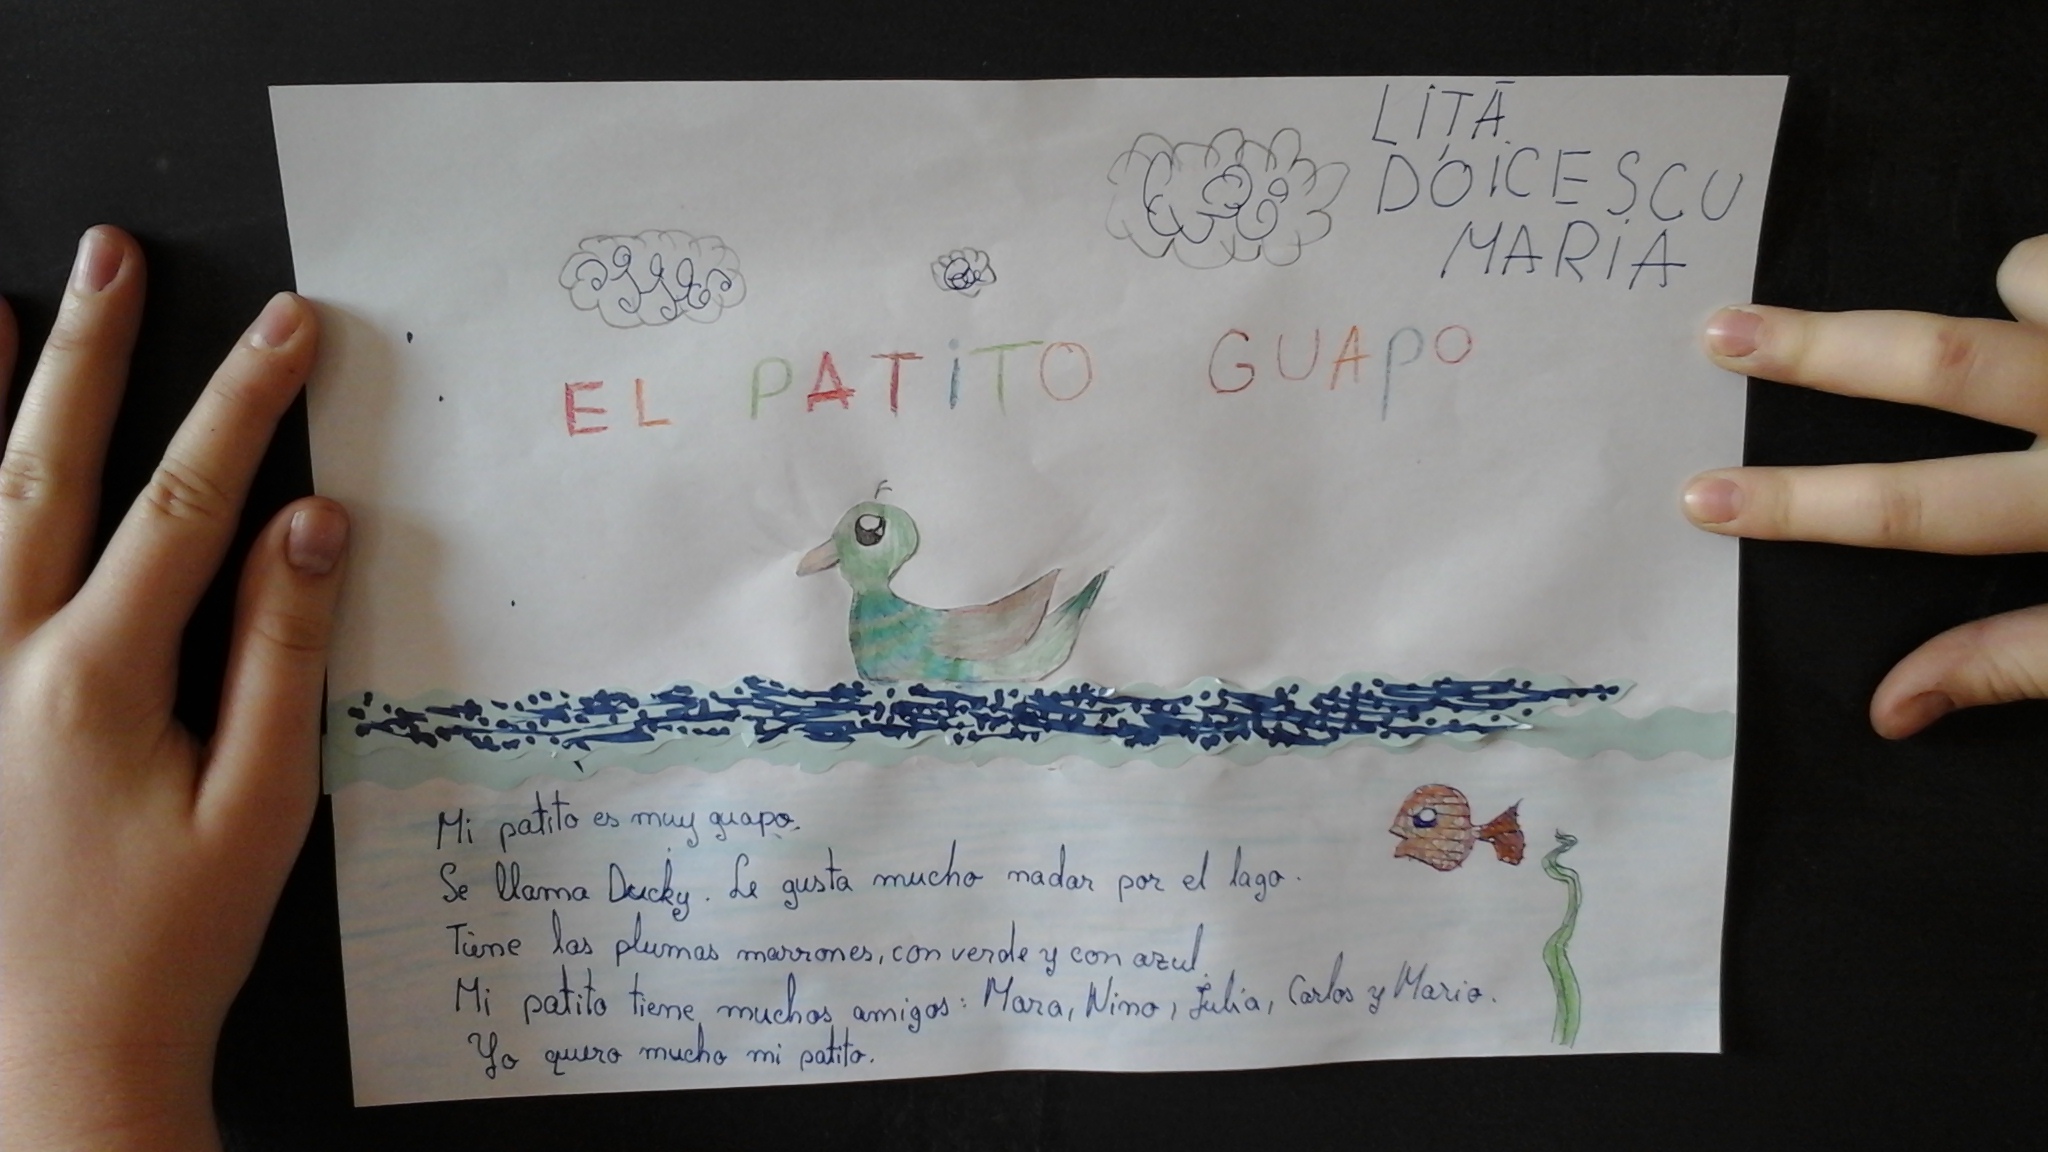 LIȚĂ
DOICESCU
MARIA
EL PATITO GUAPO
Mi patito es muy guapo.
Se llama Ducky. Le gusta mucho nadar por el lago.
Tiene las plumas marrones, con verde y con azul.
Mi patito tiene muchos amigos: Mara, Nino, Julia, Carlos y Mario.
Yo quero mucho mi patito.